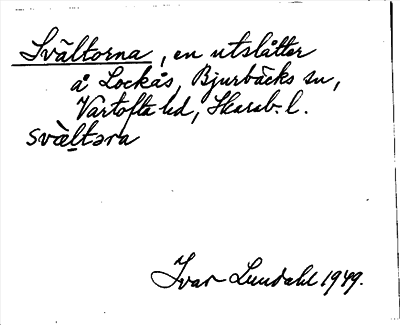 Svältorna, en utslåtter
å Lockås, Bjurbäcks sn,
Vartofta hd, Skarab. l.
svæ̀ltəra
Ivar Lundahl 1949.